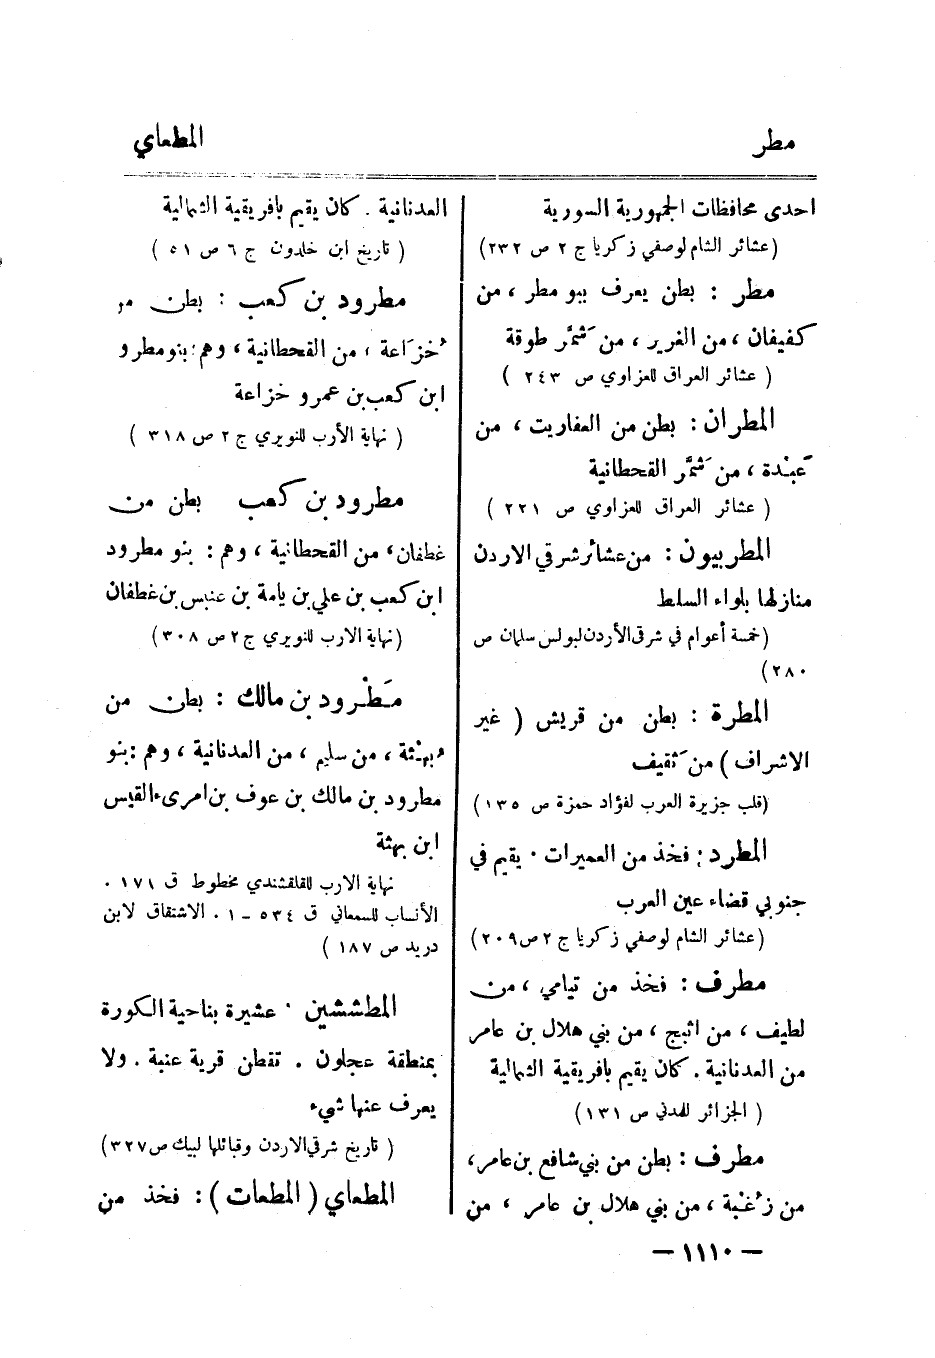 مطر
المطعاي
احدى محافظات الجمهورية السورية
(عشائر الشام لوصفي زكريا ج ٢ ص ٢٣٢)
مطر : بطن يعرف ببو مطر ، من
كفيفان ، من الغرير ، من شمَّر طوقة
( عشائر العراق للعزاوي ص ٢٤٣ )
المطران : بطن من العفاريت ، من
عَبْدة ، من شَمَّر القحطانية
( عشائر العراق للعزاوي ص ٢٢١ )
المطربيون : من عشائر شرقي الاردن
منازلها بلواء السلط
(خمسة أعوام في شرقي الأردن لبولس سلمان ص
٢٨٠)
المطرة : بطن من قريش ( غير
الاشراف ) من ثَقيف
(قلب جزيرة العرب لفؤاد حمزة ص ١٣٥)
المطرد : فخذ من العميرات . يقيم في
جنوبي قضاء عين العرب
(عشائر الشام لوصفي زكريا ج ٢ ص ٢٠٩)
مطرف : فخذ من تيامي ، من
لطيف ، من اثبج ، من بني هلال بن عامر
من العدنانية . كان يقيم بافريقية الشمالية
( الجزائر للمدني ص ١٣١)
مطرف : بطن من بني شافع بن عامر ،
من زُغْبة ، من بني هلال بن عامر ، من
العدنانية . كان يقيم بافريقية الشمالية
( تاريخ ابن خلدون ج ٦ ص ٥١ )
مطرود بن كعب : بطن من
خُزَاعة ، من القحطانية ، وهم : بنو مطرو
ابن كعب بن عمرو خزاعة
( نهاية الأرب للنويري ج ٢ ص ٣١٨ )
مطرود بن كعب بطن من
غطفان ، من القحطانية ، وهم : بنو مطرود
ابن كعب بن علي بن يامة بن عنبس بن غطفان
(نهاية الارب للنويري ج ٢ ص ٣٠٨ )
مَطْرود بن مالك : بطن من
بُهثة ، من سليم ، من العدنانية ، وهم : بنو
مطرود بن مالك بن عوف بن امرىء القيس
ابن بهثة
نهاية الارب للقلقشندي مخطوط ق ١٧١ .
الأنساب للسمعاني ق ٥٣٤ - ١ . الاشتقاق لابن
دريد ص ١٨٧ )
المطششين . عشيرة بناحية الكورة
بمنطقة عجلون . تقطن قرية عنبة . ولا
يعرف عنها شيء
( تاريخ شرقي الاردن وقبائلها لبيك ص ٣٢٧)
المطعاي ( المطعات ) : فخذ من
— ١١١٠ —